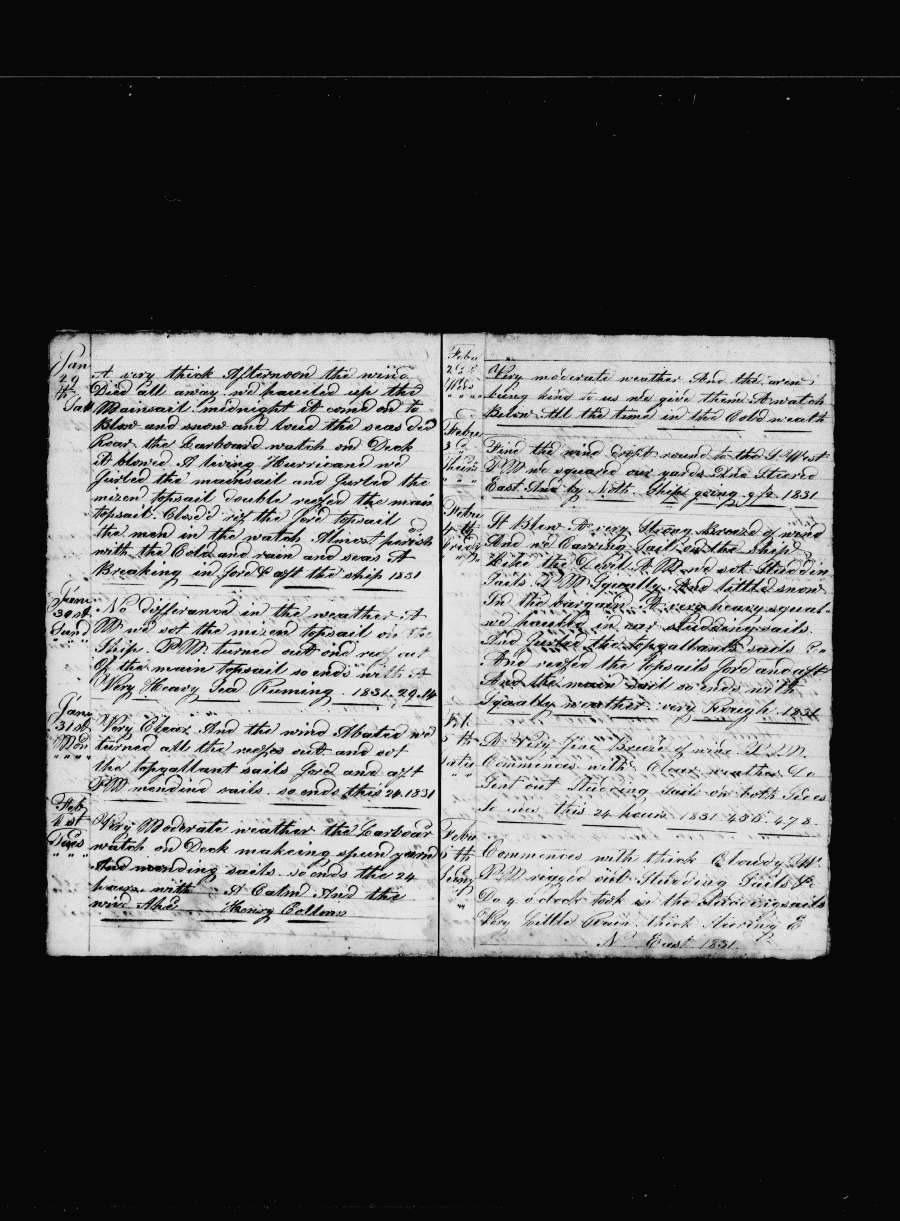 Jan
29
th
Sat
A very thick Afternoon the wind
Died all away we hauled up the
Mainsail midnight it comd on to
Blow and snow and loud the seas did
Roar the Larboard watch on Deck
it blowed A living Hurricane we
furled the mainsail and furled the
mizen topsail double reefed the main
topsail Closed rif the ford topsail
the men in the watch Almost perish
with the Cold and rain and seas A
Breaking in ford & aft the ship 1831
Jan
30 st
Sund
No differance in the weather A
M we sot the mizen topsail on the
Ship. PM turned out one reef out
Of the main topsail so ends with A
Very Heavy Sea Runing. 1831. 29.14
Jany
31 st
Mon
Very Clear And the wind Abated we
turned all the reefes out and sot
the topgallant sails ford and aft
PM mending sails. so ends this 24. 1831
Feb
1 st
Tues
Very Moderate weather the Larboar
watch on Deck makeing spun yarn
And mending sails. so ends the 24
hours with A Calm And the
wind Ahed Henry Collins
Febu
2
Very moderate weather And the
being kind to us we give them A watch
Below All the time in the Cold weath
Febu
3 d
Thurs
Find the wind drift round to the S West
PM we squared our yards And Steered
East And by Noth. Ship going 1831
Febu
4 th
Friday
It Blew A very Strong Breeze of wind
And we Carring Sail on the ship
Like the Devil A.M we sot Studdin
Sails P.M Squally And little snow
In the bargain. A very heavy squal
we hauled in our Studding sails.
And furled the topgallant sails
And reefed the topsails ford and aft
And the main sail so ends with
Squally weather very Rough 1831
5 th
A Very fine Breeze of wind
Commences with Clear weather
Sent out Studding Sails on both Sides
So ends this 24 hours 1831 456. 478.
Febu
6 th
Commences with thick Cloudy
PM reaged out Studding Sails &c
Do 4 o clock took in the Studdingsails
Very Little Rain thick Steering E
Nd East 1831.